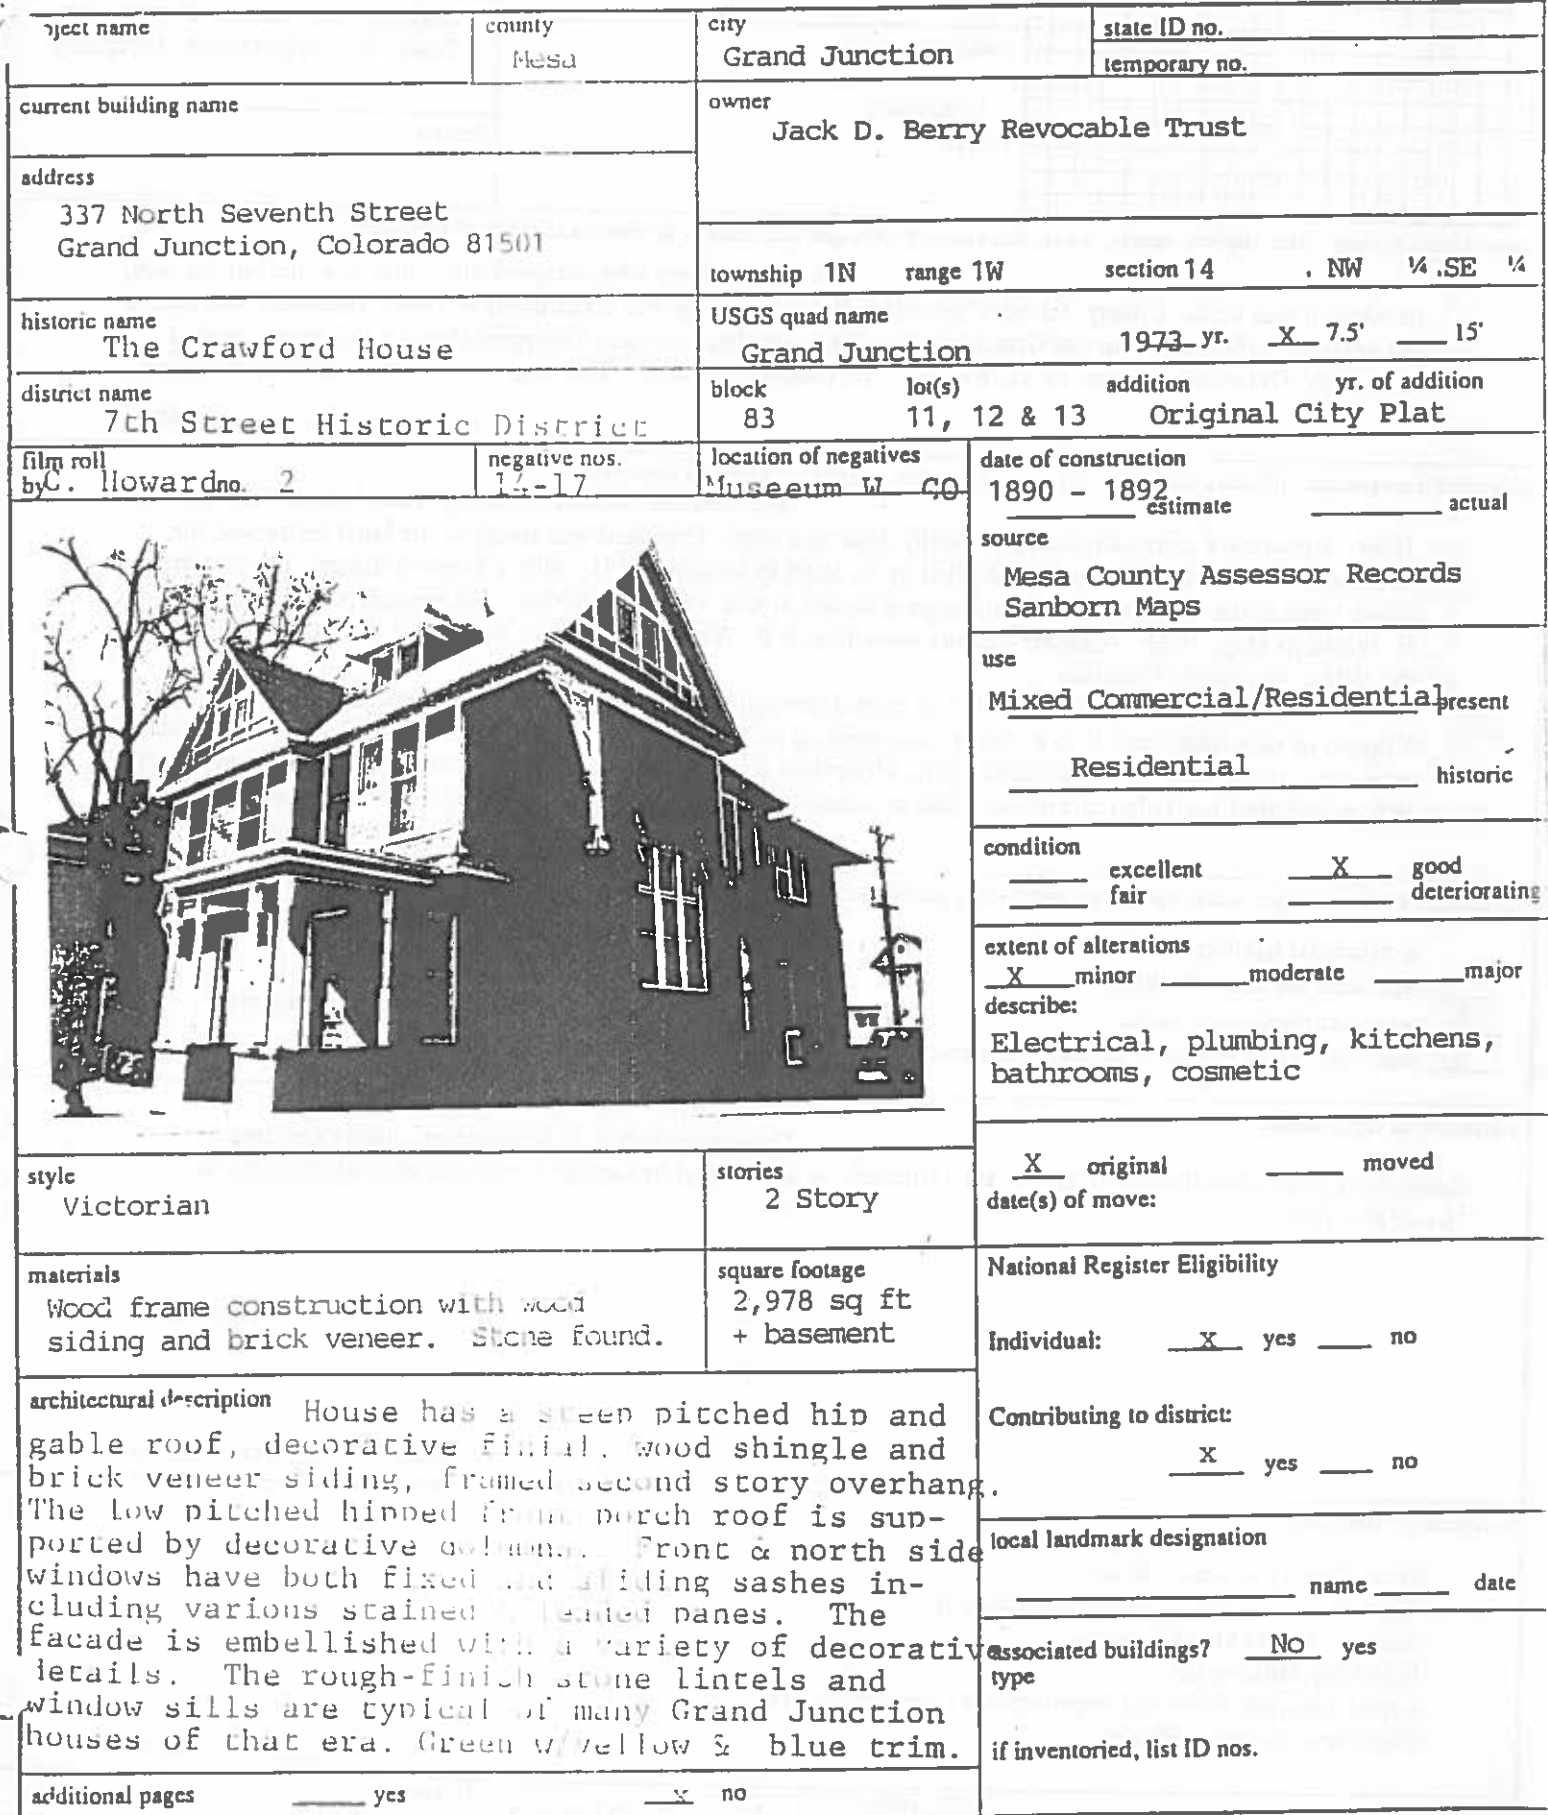 oject name
county
Mesa
city
Grand Junction
state ID no.
temporary no.
current building name
owner
Jack D. Berry Revocable Trust
address
337 North Seventh Street
Grand Junction, Colorado 81501
township 1N range 1W section 14 . NW ¼ .SE ¼
historic name
The Crawford House
USGS quad name
Grand Junction 1973 yr. X 7.5' 15'
district name
7th Street Historic District
block lot(s) addition yr. of addition
83 11, 12 & 13 Original City Plat
film roll
by C. Howard no. 2
negative nos.
14-17
location of negatives
Museeum W CO
date of construction
1890 - 1892
estimate actual
source
Mesa County Assessor Records
Sanborn Maps
use
Mixed Commercial/Residential present
Residential historic
condition
excellent X good
fair deteriorating
extent of alterations
X minor moderate major
describe:
Electrical, plumbing, kitchens,
bathrooms, cosmetic
style
Victorian
stories
2 Story
X original moved
date(s) of move:
materials
Wood frame construction with wood
siding and brick veneer. Stone found.
square footage
2,978 sq ft
+ basement
National Register Eligibility
Individual: X yes no
Contributing to district:
X yes no
architectural description House has a steep pitched hip and
gable roof, decorative finial, wood shingle and
brick veneer siding, framed second story overhang.
The low pitched hipped front porch roof is sup-
ported by decorative columns. Front & north side
windows have both fixed and sliding sashes in-
cluding various stained leaded panes. The
facade is embellished with a variety of decorative
details. The rough-finish stone lintels and
window sills are typical of many Grand Junction
houses of that era. Green w/yellow & blue trim.
local landmark designation
name date
associated buildings? No yes
type
if inventoried, list ID nos.
additional pages yes x no